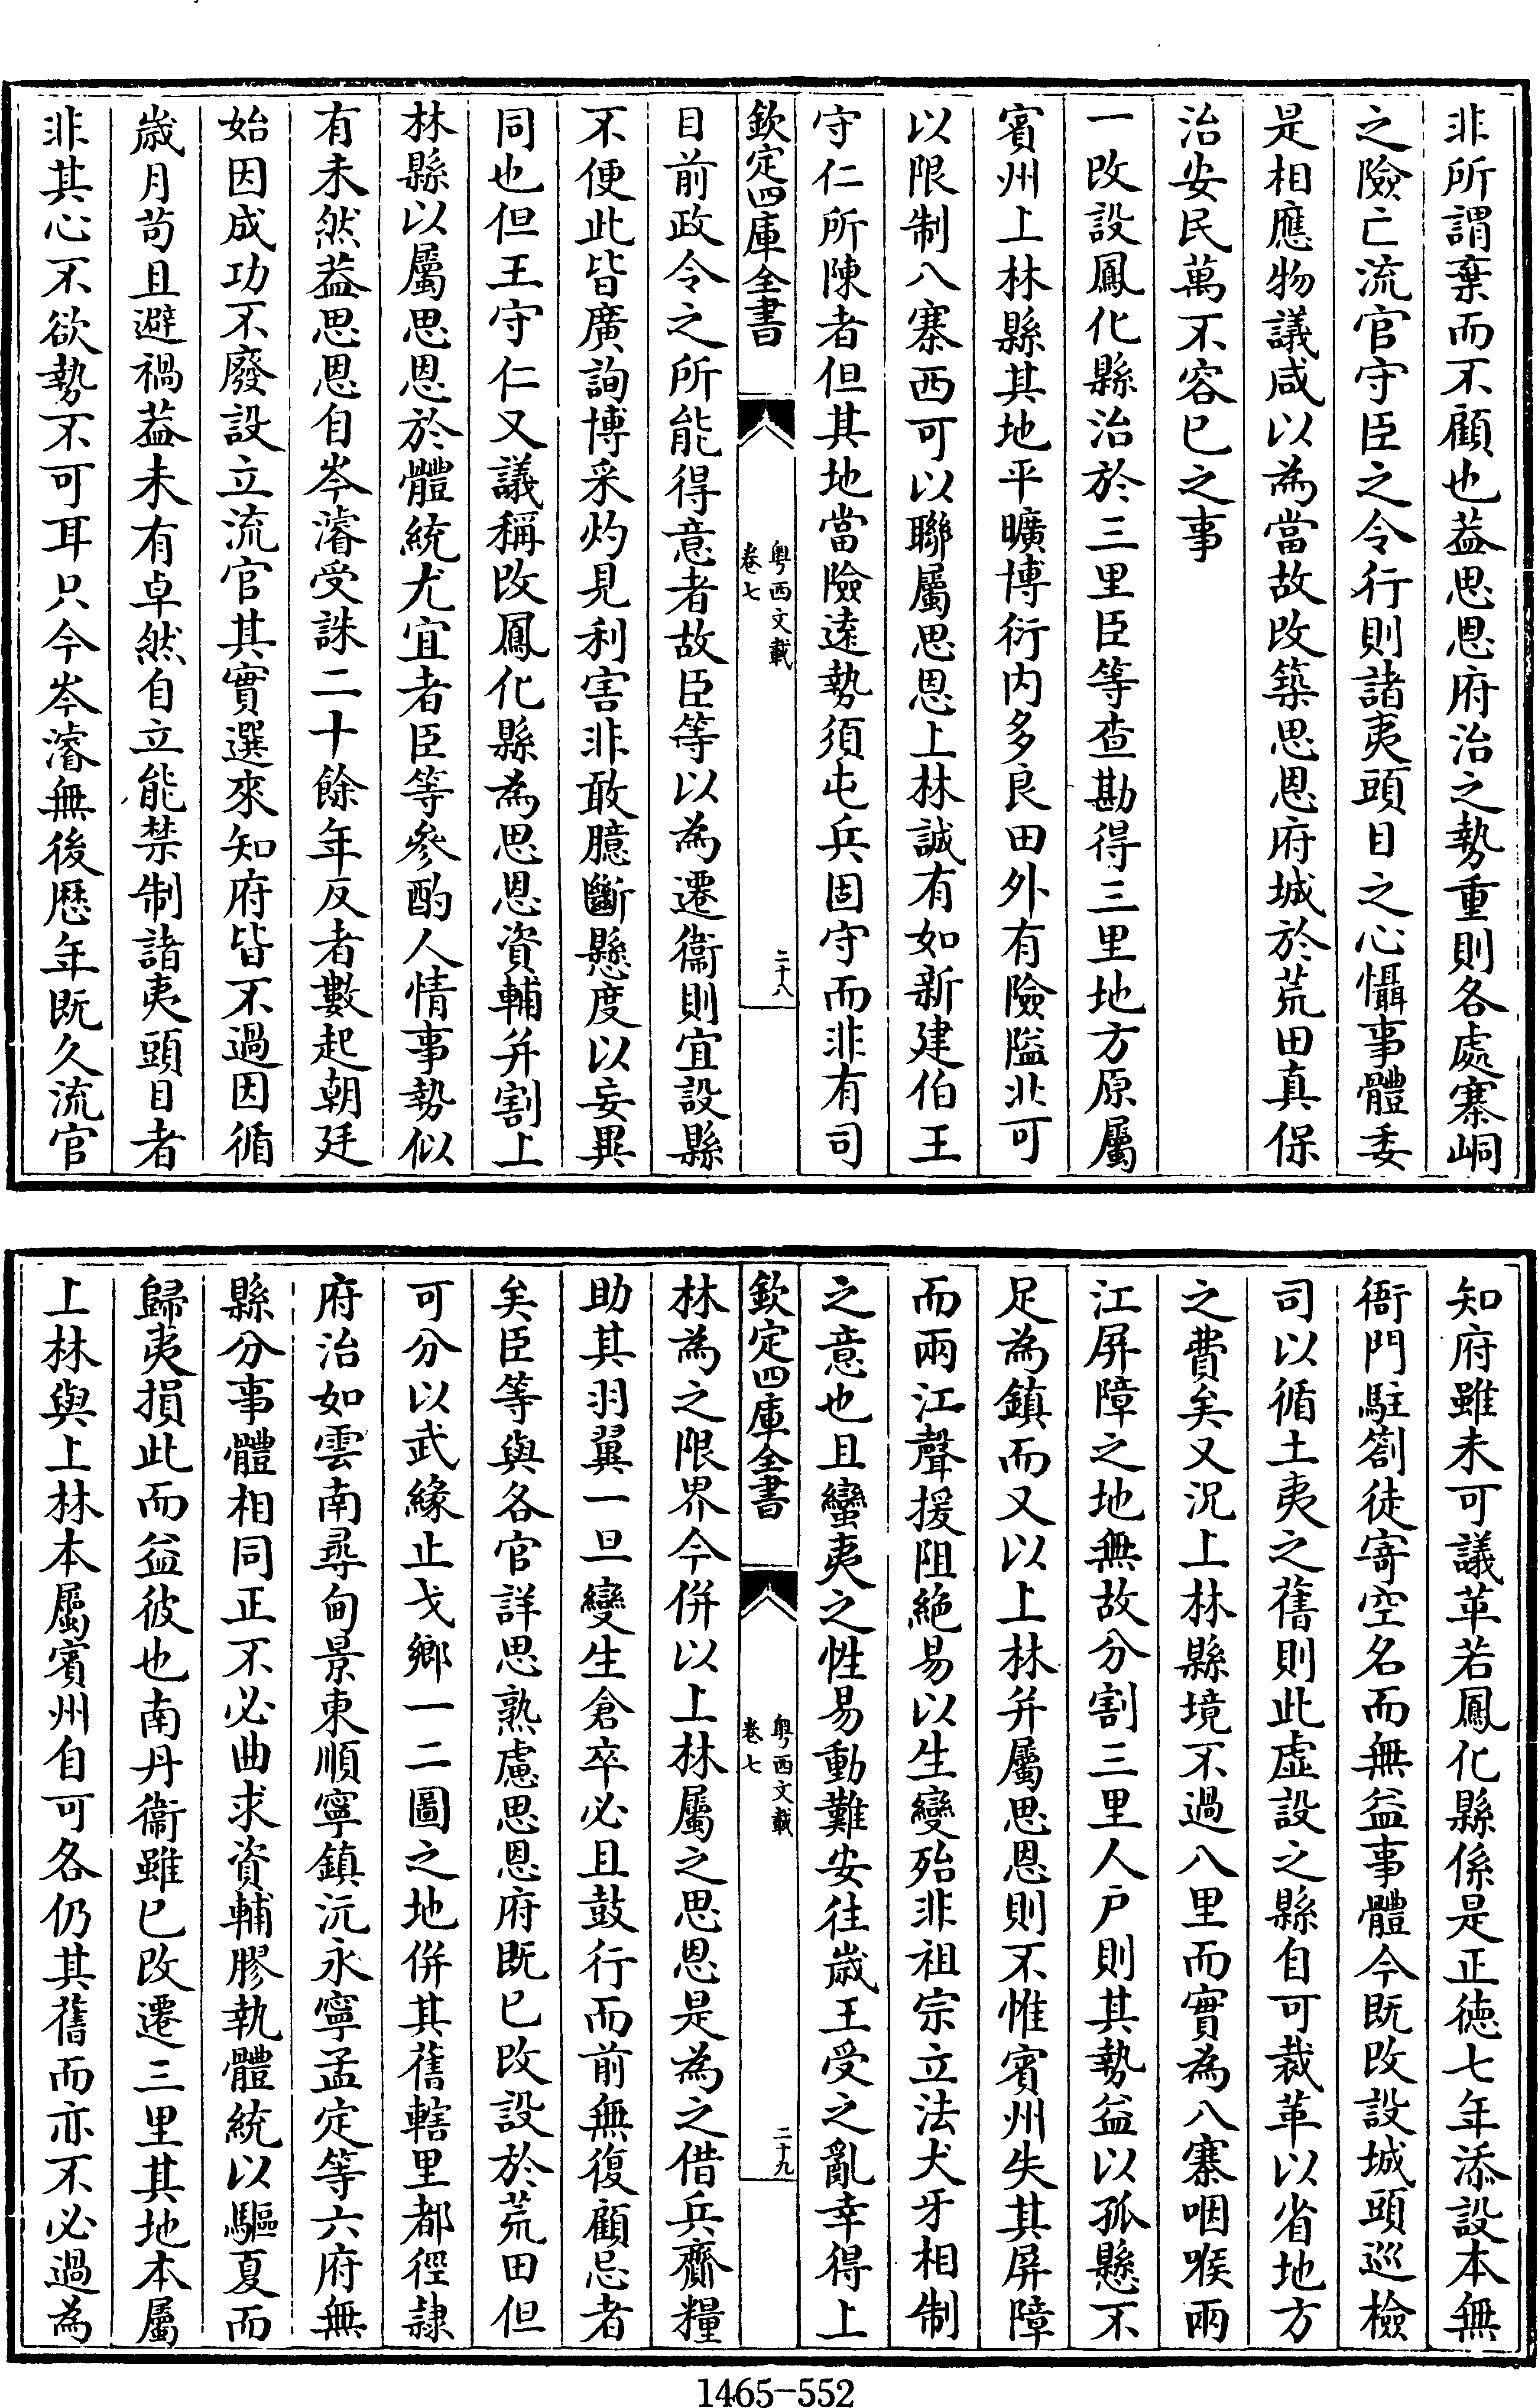 非所謂棄而不顧也葢思恩府治之勢重則各處寨峒
之險亡流官守臣之令行則諸夷頭目之心懾事體委
是相應物議咸以為當故改築思恩府城於荒田真保
治安民萬不容已之事
一改設鳳化縣治於三里臣等查勘得三里地方原屬
賓州上林縣其地平曠博衍内多良田外有險隘北可
以限制八寨西可以聯屬思恩上林誠有如新建伯王
守仁所陳者但其地當險遠勢須屯兵固守而非有司
欽定四庫全書
粤西文載
卷七
二十八
目前政令之所能得意者故臣等以為遷衞則宜設縣
不便此皆廣詢博采灼見利害非敢臆斷懸度以妄異
同也但王守仁又議稱改鳳化縣為思恩資輔并割上
林縣以屬思恩於體統尤宜者臣等參酌人情事勢似
有未然葢思恩自岑濬受誅二十餘年反者數起朝廷
始因成功不廢設立流官其實選來知府皆不過因循
歲月苟且避禍葢未有卓然自立能禁制諸夷頭目者
非其心不欲勢不可耳只今岑濬無後歴年既久流官
知府雖未可議革若鳳化縣係是正德七年添設本無
衙門駐劄徒寄空名而無益事體今既改設城頭巡檢
司以循土夷之舊則此虚設之縣自可裁革以省地方
之費矣又況上林縣境不過八里而實為八寨咽喉兩
江屏障之地無故分割三里人户則其勢益以孤懸不
足為鎮而又以上林并屬思恩則不惟賓州失其屏障
而兩江聲援阻絶易以生變殆非祖宗立法犬牙相制
之意也且蠻夷之性易動難安往歲王受之亂幸得上
欽定四庫全書
粤西文載
卷七
二十九
林為之限界今併以上林屬之思恩是為之借兵齎糧
助其羽翼一旦變生倉卒必且鼓行而前無復顧忌者
矣臣等與各官詳思熟慮思恩府既已改設於荒田但
可分以武緣止戈鄉一二圖之地併其舊轄里都徑隷
府治如雲南尋甸景東順寧鎮沅永寧孟定等六府無
縣分事體相同正不必曲求資輔膠執體統以驅夏而
歸夷損此而益彼也南丹衞雖已改遷三里其地本屬
上林與上林本屬賓州自可各仍其舊而亦不必過為
1465-552